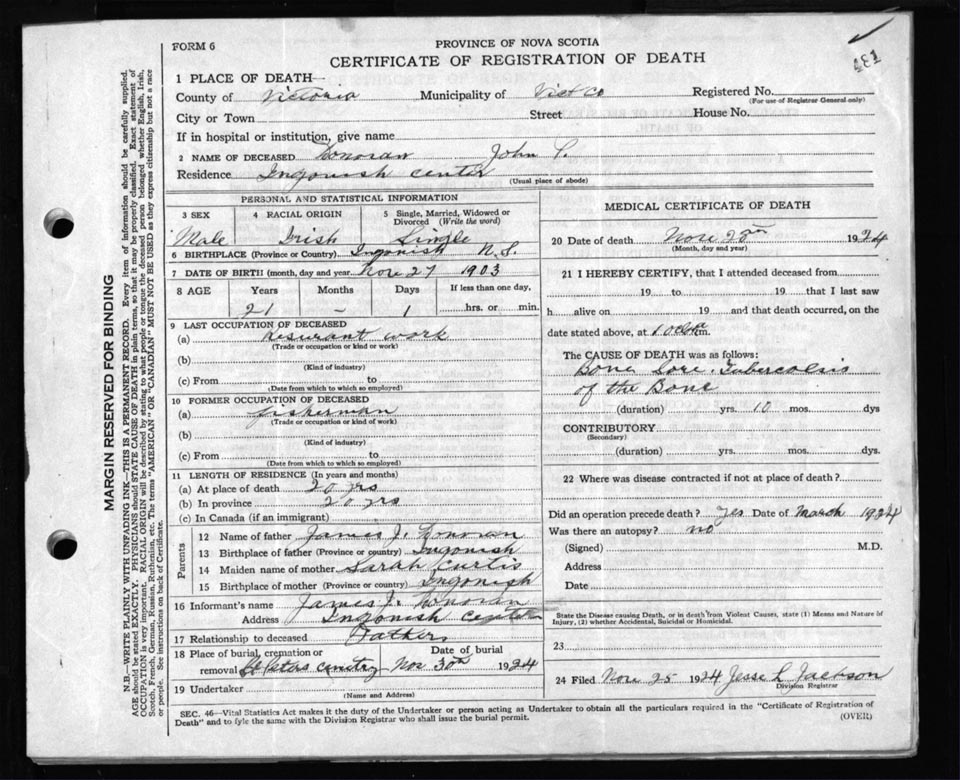 FORM 6
PROVINCE OF NOVA SCOTIA
CERTIFICATE OF REGISTRATION OF DEATH
481
1 PLACE OF DEATH
County of Victoria Municipality of Vict Co Registered No.
(For use of Registrar General only)
City or Town Street House No.
If in hospital or institution, give name
2 NAME OF DECEASED Donovan John P.
Residence Ingonish center
(Usual place of abode)
PERSONAL AND STATISTICAL INFORMATION
3 SEX 4 RACIAL ORIGIN 5 Single, Married, Widowed or Divorced (Write the word)
Male Irish Single
6 BIRTHPLACE (Province or Country) Ingonish N.S.
7 DATE OF BIRTH (month, day and year) Nov 27 1903
8 AGE Years Months Days If less than one day,
21 - 1 hrs. or min.
9 LAST OCCUPATION OF DECEASED
(a) Resurant work
(Trade or occupation or kind or work)
(b)
(Kind of industry)
(c) From to
(Date from which to which so employed)
10 FORMER OCCUPATION OF DECEASED
(a) fisherman
(Trade or occupation or kind of work)
(b)
(Kind of industry)
(c) From to
(Date from which to which so employed)
11 LENGTH OF RESIDENCE (In years and months)
(a) At place of death 20 yrs
(b) In province 20 yrs
(c) In Canada (if an immigrant)
Parents
12 Name of father James J. Donovan
13 Birthplace of father (Province or country) Ingonish
14 Maiden name of mother Sarah Curtis
15 Birthplace of mother (Province or country) Ingonish
16 Informant's name James J. Donovan
Address Ingonish
17 Relationship to deceased Father
18 Place of burial, cremation or removal Date of burial
St Peters Nov 30th 1924
19 Undertaker
(Name and Address)
MEDICAL CERTIFICATE OF DEATH
20 Date of death Nov 1924
(Month, day and year)
21 I HEREBY CERTIFY, that I attended deceased from
19 to 19 that I last saw
h alive on 19 and that death occurred, on
date stated above, at m.
The CAUSE OF DEATH was as follows:
Bone Sore Tubercolsis
of the Bone
(duration) yrs. 10 mos. dys
CONTRIBUTORY
(Secondary)
(duration) yrs. mos. dys.
22 Where was disease contracted if not at place of death?
Did an operation precede death? Yes Date of March 1924
Was there an autopsy? no
(Signed) M.D.
Address
Date
State the Disease causing Death, or in death from Violent Causes, state (1) Means and Nature of
Injury, (2) whether Accidental, Suicidal or Homicidal.
23
24 Filed Nov 25 1924 Jesse L Jackson
Division Registrar
SEC. 46—Vital Statistics Act makes it the duty of the Undertaker or person acting as Undertaker to obtain all the particulars required in the "Certificate of Registration of
Death" and to fyle the same with the Division Registrar who shall issue the burial permit.
(OVER)
MARGIN RESERVED FOR BINDING
N.B.—WRITE PLAINLY WITH UNFADING INK—THIS IS A PERMANENT RECORD. Every item of information should be carefully supplied.
AGE should be stated EXACTLY. PHYSICIANS should STATE CAUSE OF DEATH in plain terms, so that it may be properly classified. Exact statement of
OCCUPATION is very important. RACIAL ORIGIN will be described by stating to what people or tongue the deceased person belonged whether English, Irish,
Scotch, French, German, Russian, Ruthenian, etc. The terms "AMERICAN" OR "CANADIAN" MUST NOT BE USED as they express citizenship but not a race
or people. See instructions on back of Certificate.